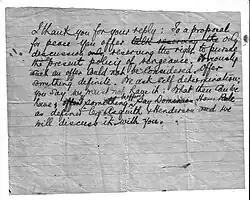 I thank you for your reply: To a proposal
for peace you offer only
discussion only reserving the right to pursue
the present policy of vengeance. Obviously
such an offer could not be considered. Offer
something definite. We ask self determination;
you say we must not have it. What then can be
have? offer something. Say Dominion Home Rule
as defined by Asquith & Henderson and we
will discuss it with you.